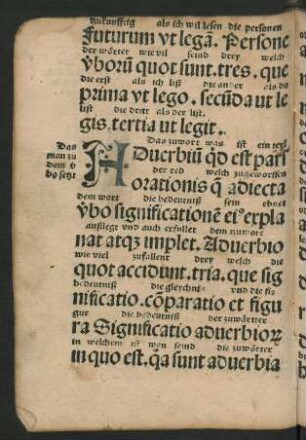 zukunfftig als ich wil lesen die personen
Futurum vt legā. Persone
der wörter wievil seind drey welch
v̄borū quot sunt. tres. que
die erst als ich liß die ander als du
prima vt lego. secūda ut le
list die dritt als der list.
gis. tertia ut legit.
Das Das zuwort was ist ein teyl
man zu ADuerbiū qd̄ est pars
dem v der red welch zugeworffen
bo setzt orationis q̄ adiecta
dem wort die bedeutniß sein
v̄bo significationē ei⁹ expla
außlegt vnd auch erfüllet dem
nat atqȝ implet. Aduerbio
wie viel zufallent drey welch die
quot accidunt. tria. que sig
bedeutniß die gleychniß vnd die fi
nificatio. cōparatio et figu
gur die bedeutniß der zuwörtter
ra Significatio aduerbioꝝ
in welchem ist wan seind die zuwörter
in quo est. q̄a sunt aduerbia